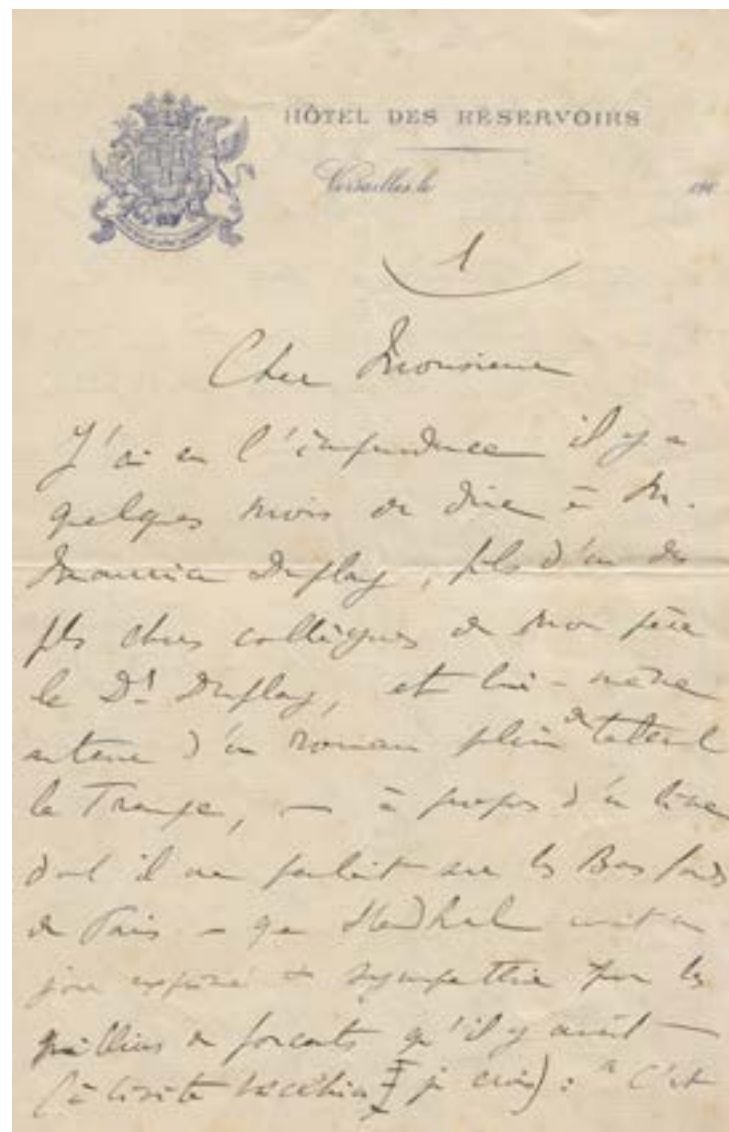 HÔTEL DES RÉSERVOIRS
Versailles, le 190
1
Cher Monsieur
J'ai eu l'imprudence il y a
quelques mois de dire à M.
Maurice Duplay, fils d'un des
plus chers collègues de mon père
le Dr Duplay, et lui-même
auteur d'un roman plein de talent
la Trempe, — à propos d'un livre
dont il me parlait sur les Bas fonds
de Paris — que Stendhal avait un
jour exprimé sa sympathie pour les
milliers de forçats qu'il y avait —
(à Civita Vecchia je crois) : " C'est